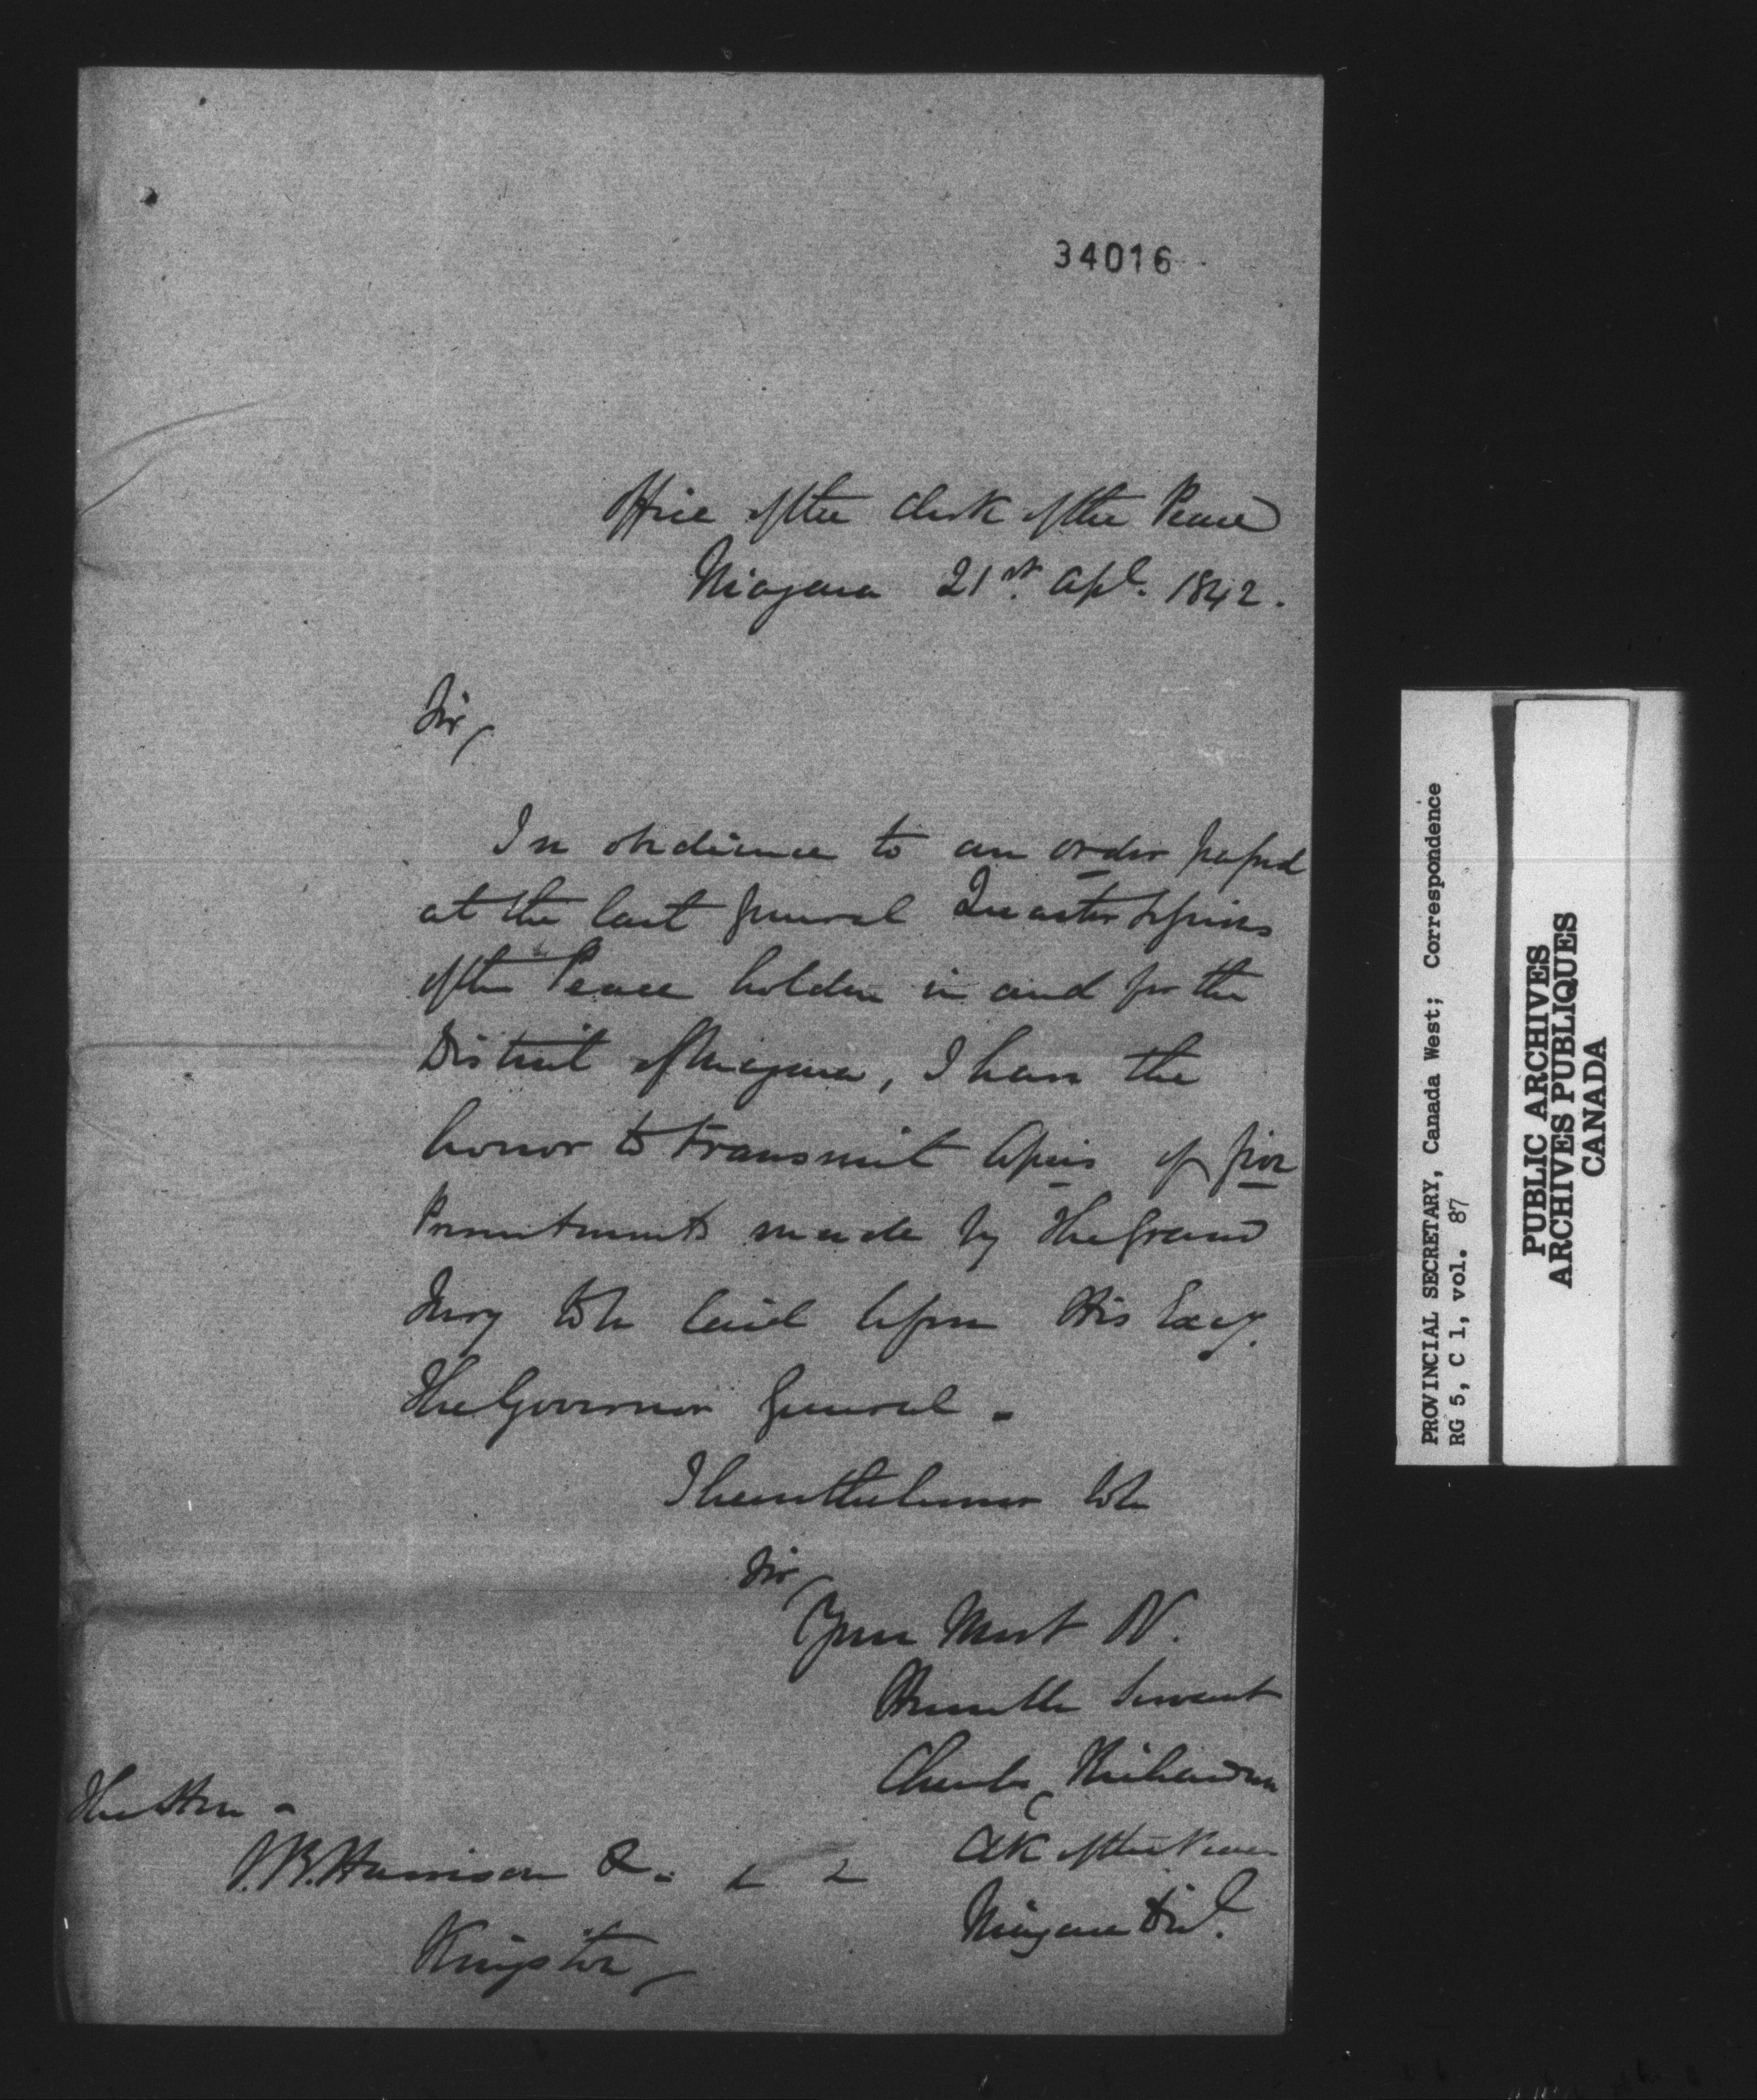 34016
Office of the Clerk of the Peace
Niagara 21st. Apl. 1842.
Sir,
In obedience to an order passed
at the last General Quarter Sessions
of the Peace holden in and for the
District of Niagara, I have the
honor to transmit Copies of five
Presentments made by the Grand
Jury to be laid before His Excy.
The Governor General.
I have the honor to be
Sir,
Your Most Ob.
Humble Servant
Charles Richardson
Clk of the Peace
Niagara Dist.
The Hon
S.B. Harrison &c &c
Kingston
PROVINCIAL SECRETARY, Canada West; Correspondence
RG 5, C 1, vol. 87
PUBLIC ARCHIVES
ARCHIVES PUBLIQUES
CANADA